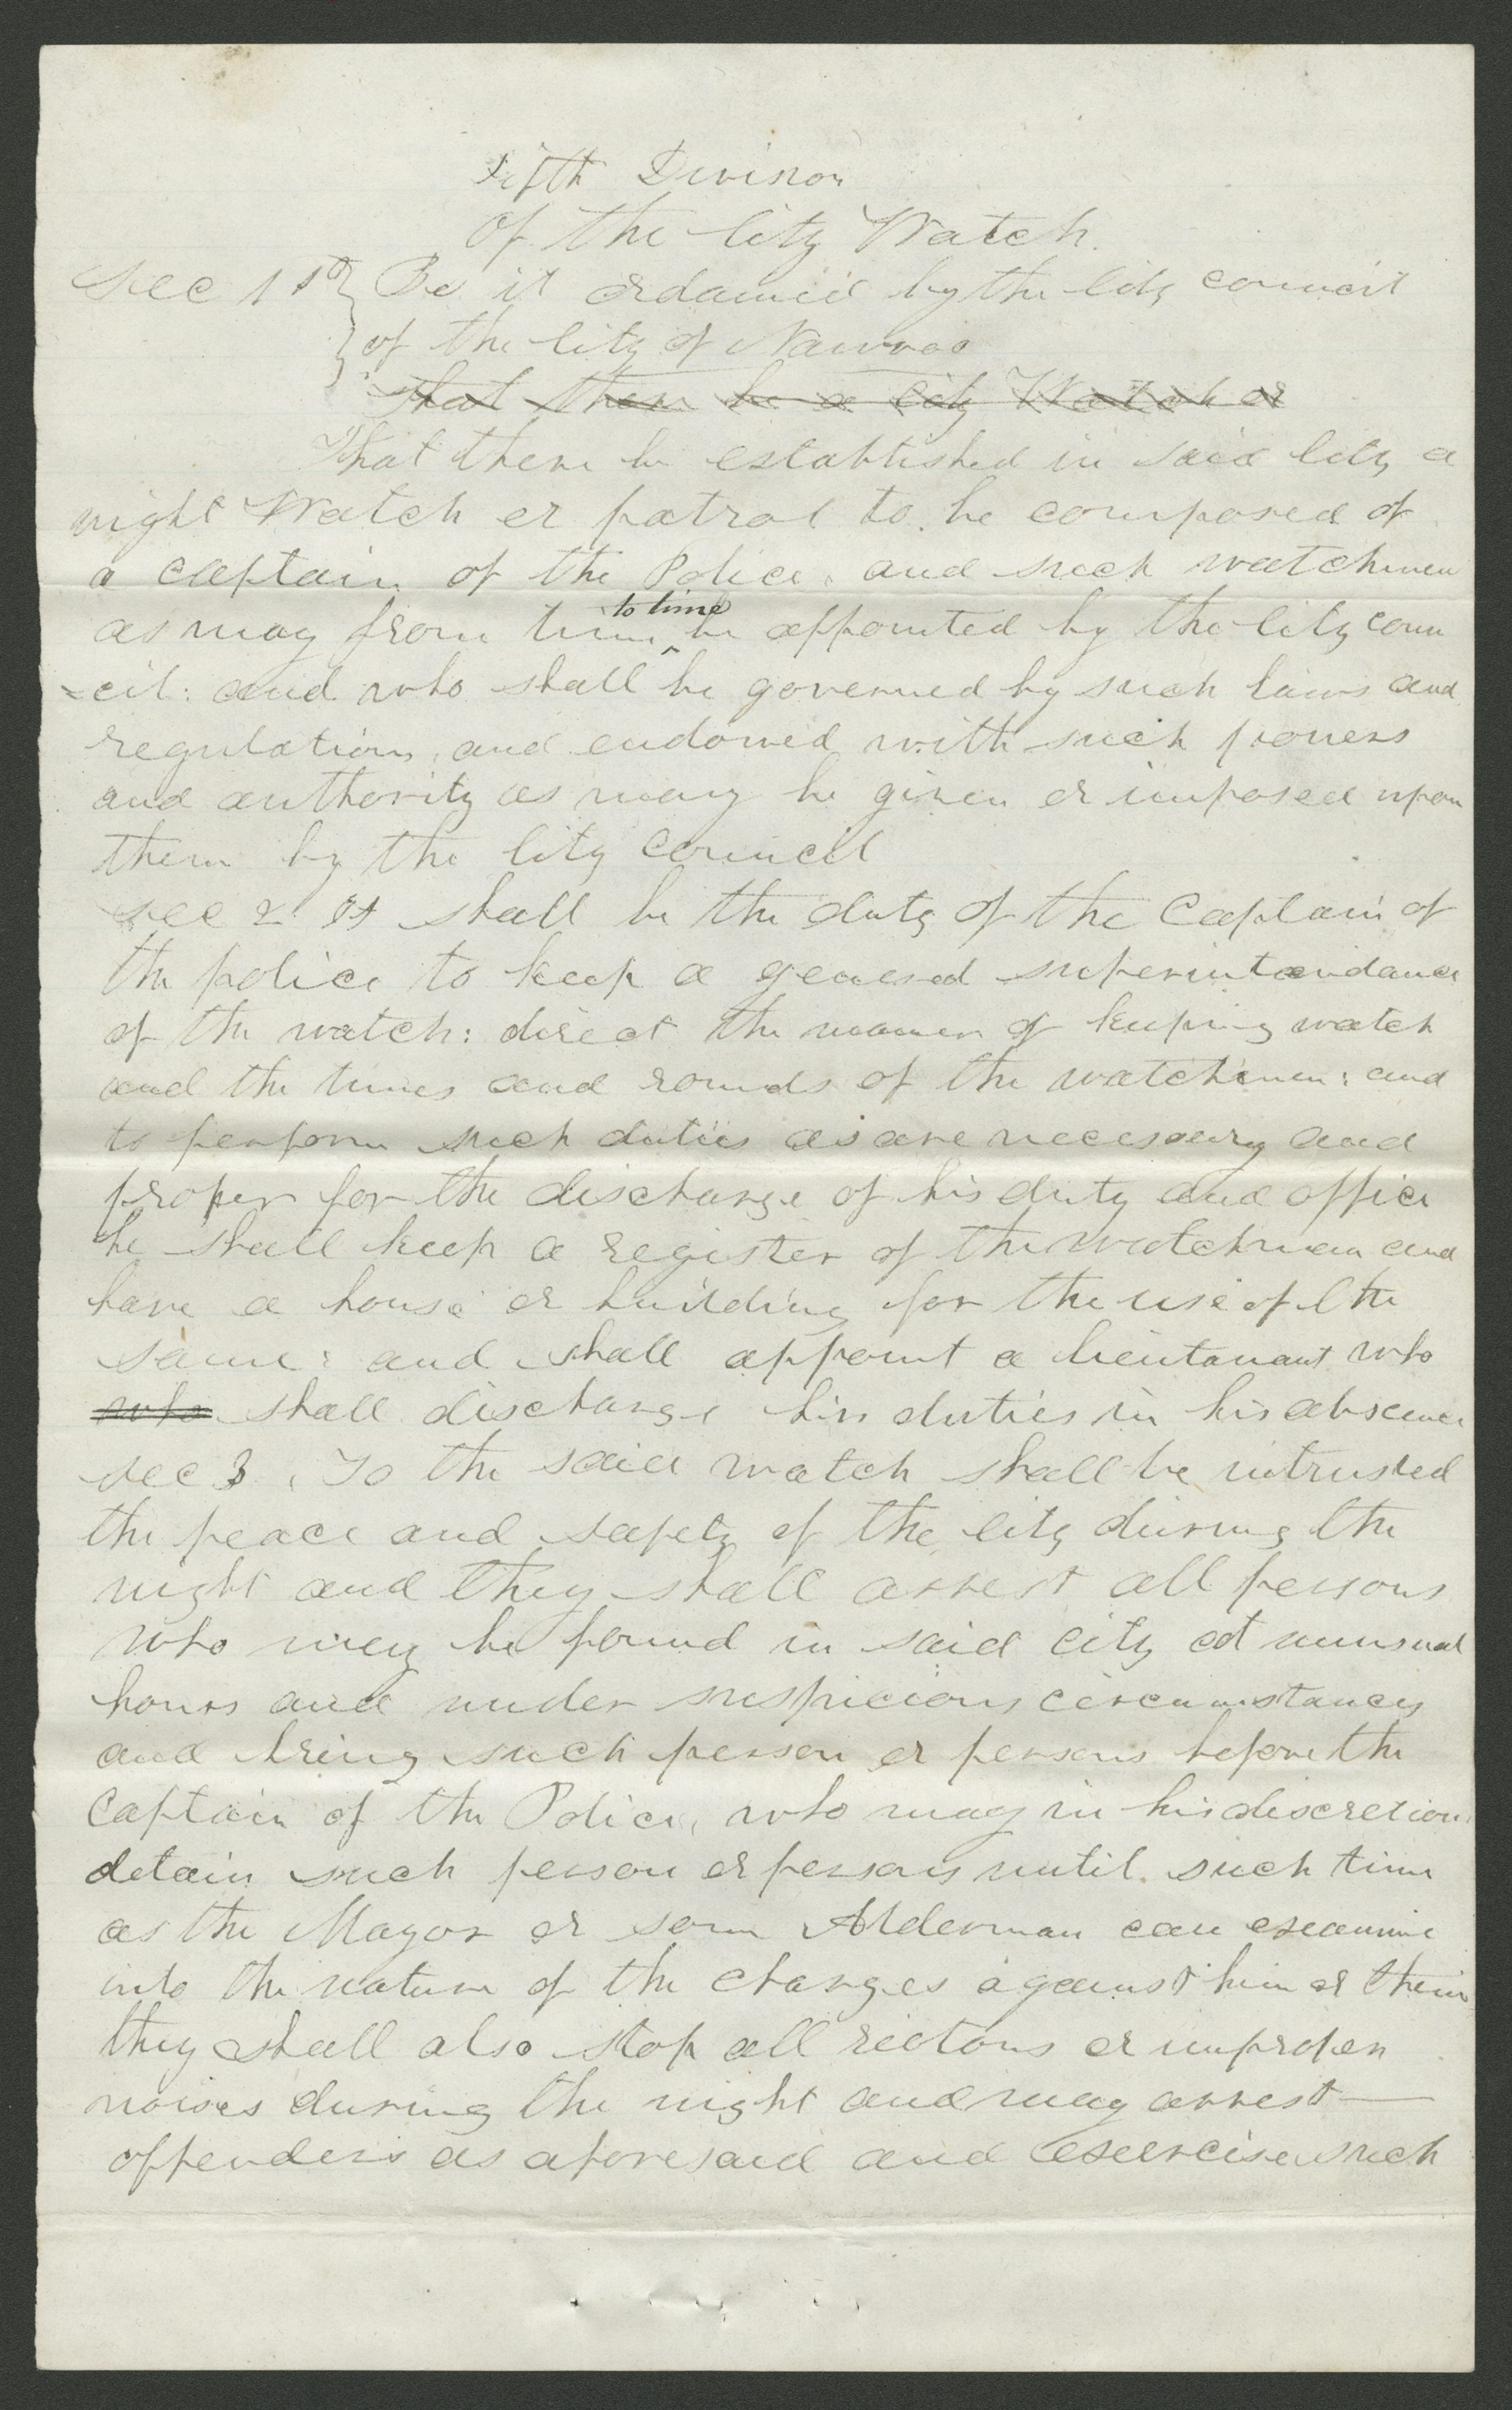 Fifth Division
Of the City Watch.
Sec 1st Be it ordained by the City council
of the City of Nauvoo
that there be a City Watch or
That there be established in said City a
night Watch or patrol to be composed of
a captain of the Police, and such watchmen
as may from time to time be appointed by the City coun
-cil: and who shall be governed by such laws and
regulations, and endowed with such powers
and authority as may be given or imposed upon
them by the City Council
Sec 2 It shall be the duty of the Captain of
the police to keep a general superintendance
of the watch: direct the manner of keeping watch
and the times and rounds of the watchmen: and
to perform such duties as are necessary and
proper for the discharge of his duty and office
he shall keep a register of the watchman and
have a house or building for the use of the
same: and shall appoint a lieutanant who
who shall discharge his duties in his absence
Sec 3. To the said watch shall be intrusted
the peace and safety of the city during the
night and they shall arrest all persons
who may be found in said city at unusual
hours and under suspicious circumstances
and bring such person or persons before the
Captain of the Police, who may in his discretion
detain such person or persons until such time
as the Mayor or some Alderman can examine
into the nature of the charges against him or them
they shall also stop all riotous or improper
noises during the night and may arrest—
offenders as aforesaid and exercise such